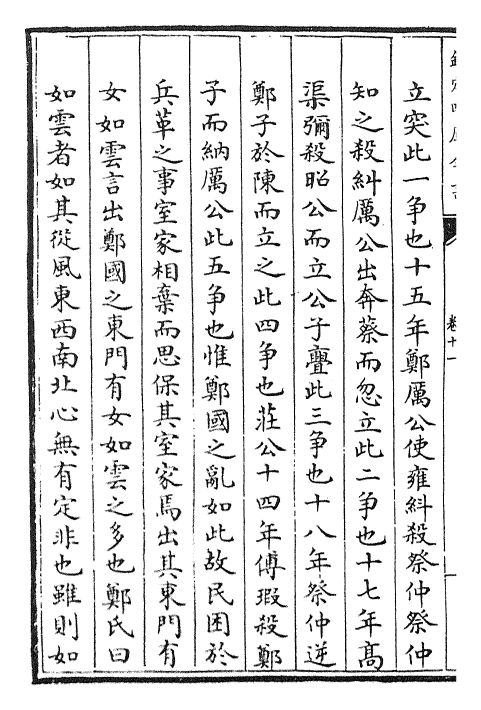 立突此一争也十五年鄭厲公使雍糾殺祭仲祭仲
知之殺糾厲公出奔蔡而忽立此二争也十七年髙
渠彌殺昭公而立公子亹此三争也十八年祭仲逆
鄭子於陳而立之此四争也莊公十四年傅瑕殺鄭
子而納厲公此五争也惟鄭國之亂如此故民困於
兵革之事室家相棄而思保其室家焉出其東門有
女如雲言出鄭國之東門有女如雲之多也鄭氏曰
如雲者如其從風東西南北心無有定非也雖則如
卷十一